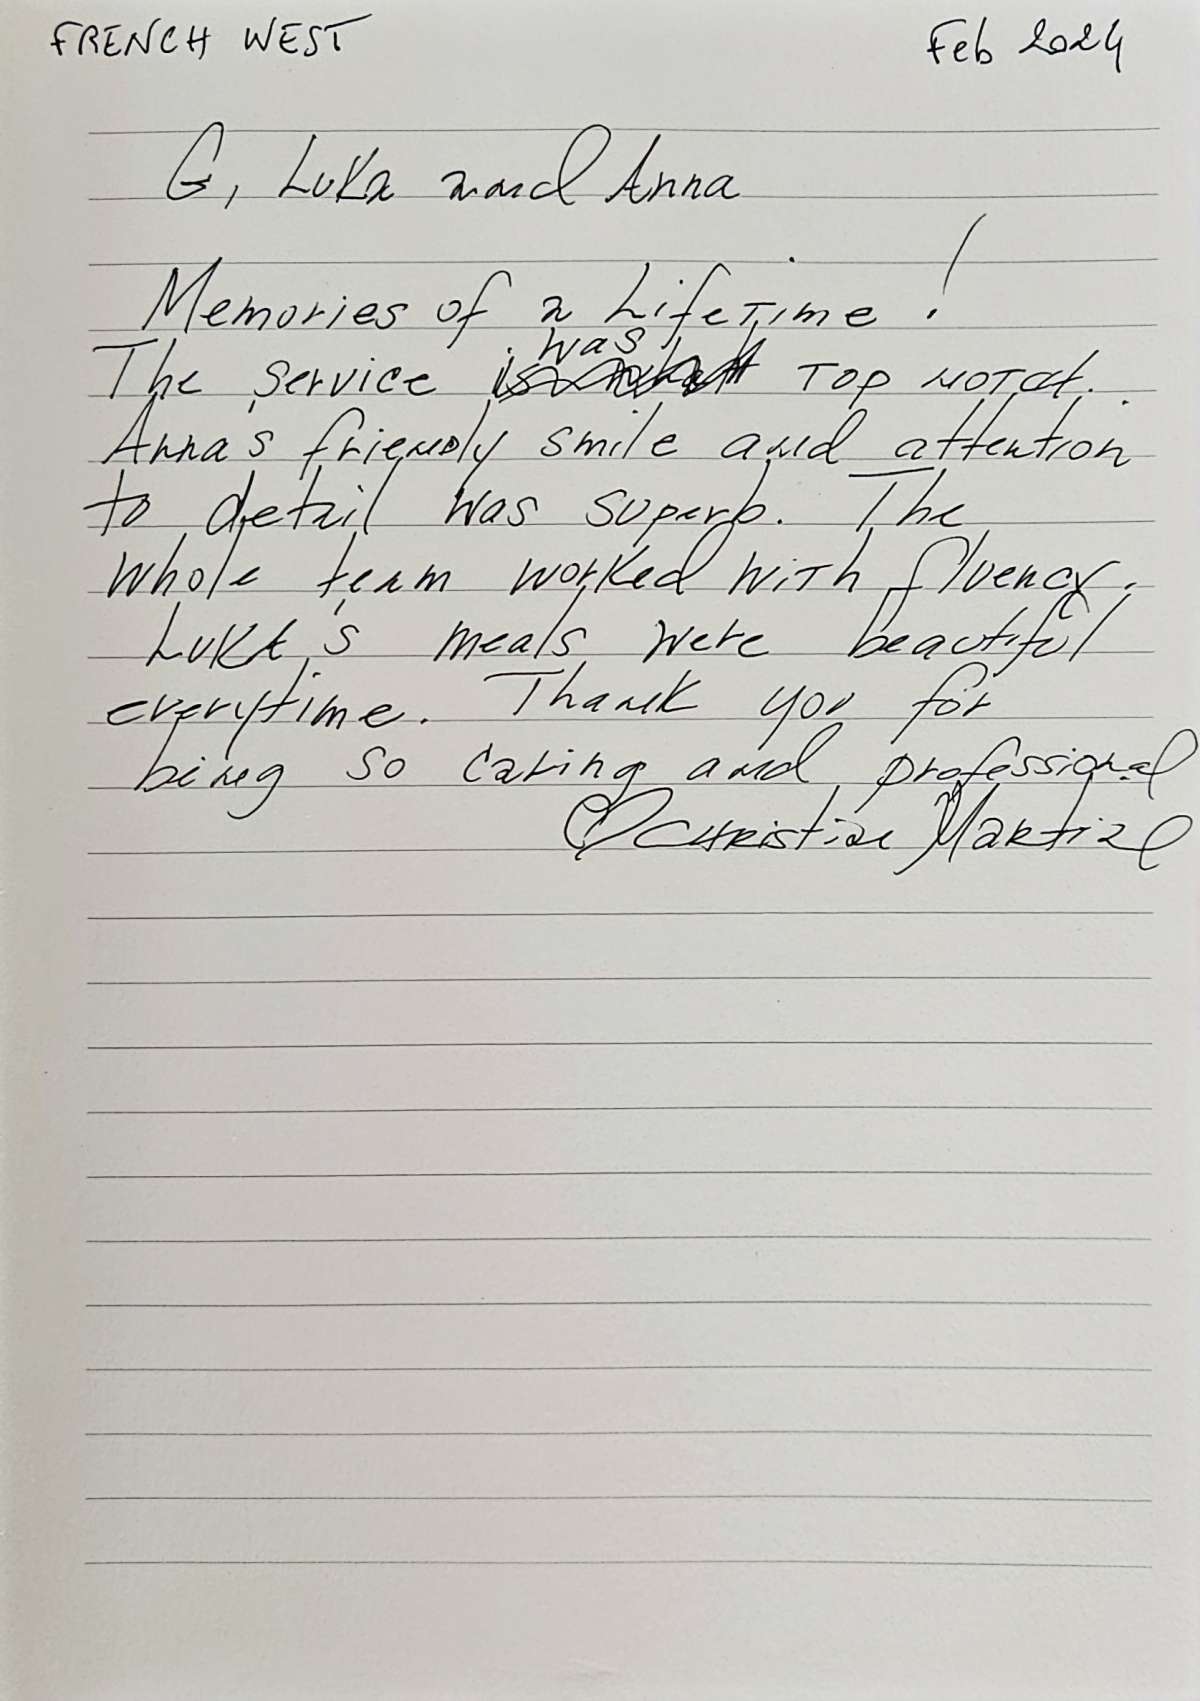 FRENCH WEST Feb 2024
G, Luka and Anna
Memories of a Lifetime!
The service was TOP NOTCH.
Anna's friendly smile and attention
to detail was superb. The
whole team worked with fluency.
Luka's meals were beautiful
everytime. Thank you for
being so caring and professional
Christian Martial